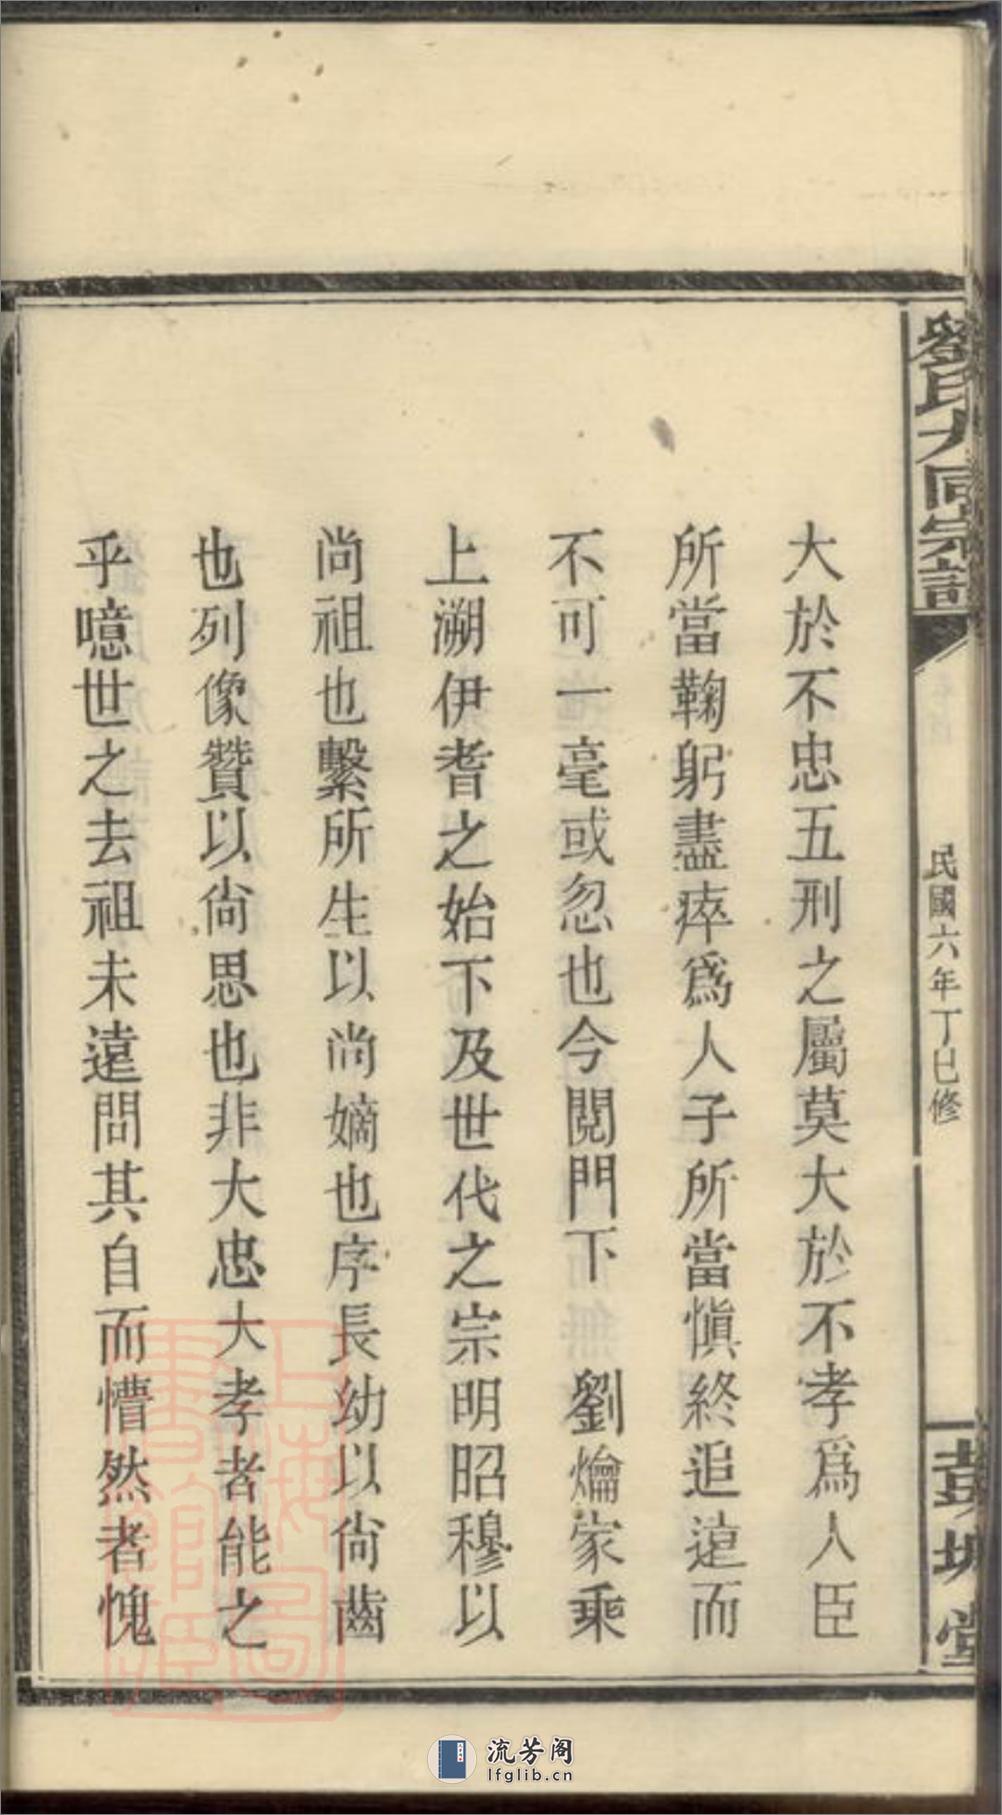 劉氏大同宗譜
民國六年丁巳修
彭城堂
大於不忠五刑之屬莫大於不孝爲人臣
所當鞠躬盡瘁爲人子所當愼終追遠而
不可一毫或忽也今閱門下 劉爚家乘
上溯伊耆之始下及世代之宗明昭穆以
尚祖也繫所生以尚嫡也序長幼以尙齒
也列像贊以尙思也非大忠大孝者能之
乎噫世之去祖未遠問其自而懵然者愧
上海圖書館藏
流芳阁
lfglib.cn